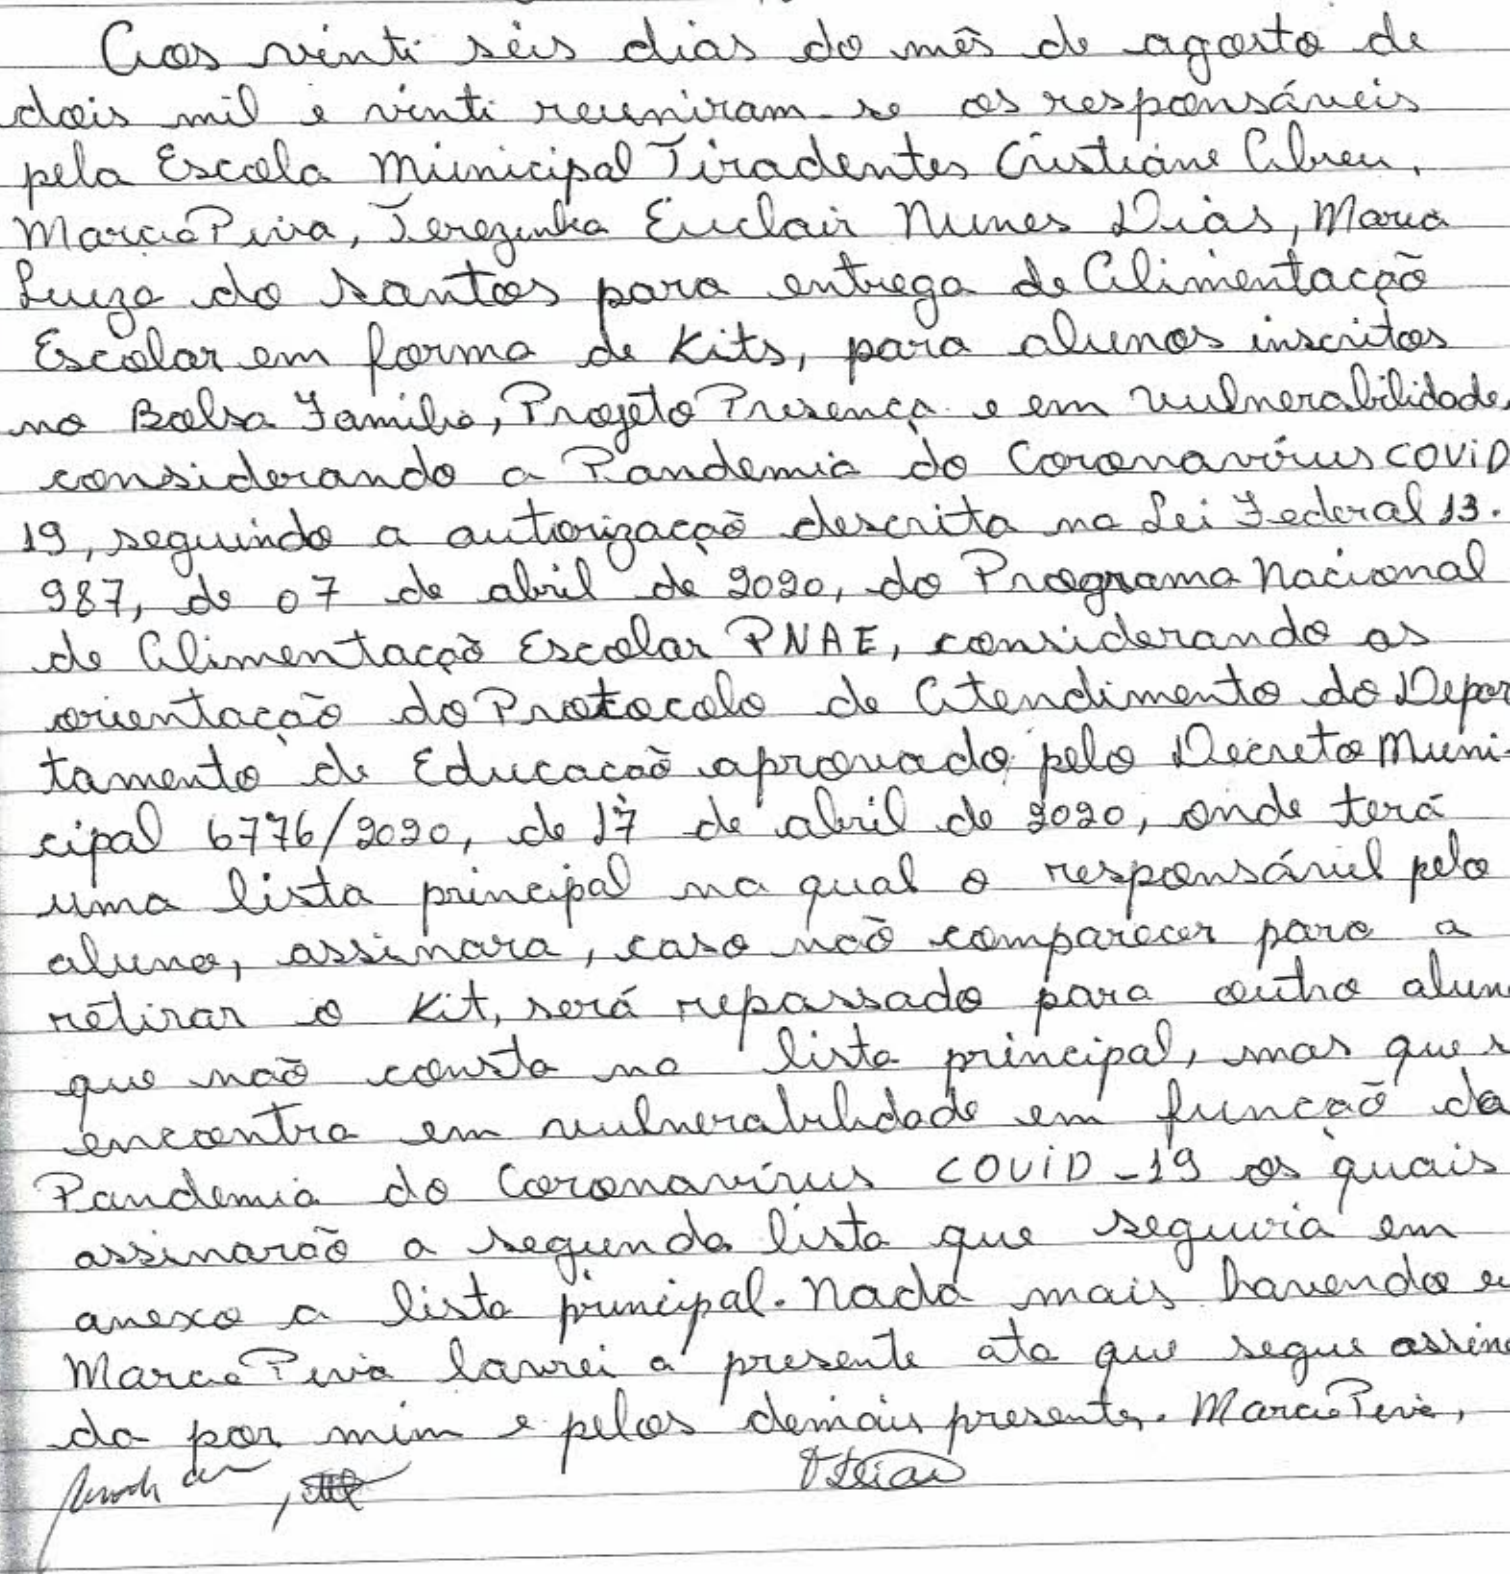 Aos vinti seis dias do mês de agosto de
dois mil e vinti reuniram-se os responsáveis
pela Escola Municipal Tiradentes Cristiane Abreu,
Marcia Piva, Terezinha Euclair Nunes Dias, Maria
Luiza do Santos para entrega de Alimentação
Escolar em forma de Kits, para alunos inscritos
no Bolsa Família, Projeto Presença e em vulnerabilidade,
considerando a Pandemia do Coronavírus COVID
19, seguindo a autorização descrita na Lei Federal 13.
987, de 07 de abril de 2020, do Programa Nacional
de Alimentação Escolar PNAE, considerando as
orientação do Protocolo de Atendimento do Depar
tamento de Educação aprovado pelo Decreto Muni-
cipal 6776/2020, de 17 de abril de 2020, onde terá
uma lista principal na qual o responsável pelo
aluno, assinara, caso não comparecer para a
retirar o Kit, será repassado para outro alun
que não consta na lista principal, mas que s
encontra em vulnerabilidade em função da
Pandemia do Coronavírus COVID-19 os quais
assinarão a segunda lista que seguirá em
anexo a lista principal. Nada mais havendo e
Marcia Piva lavrei a presente ata que segue assina
da por mim e pelos demais presente. Marcia Piva,